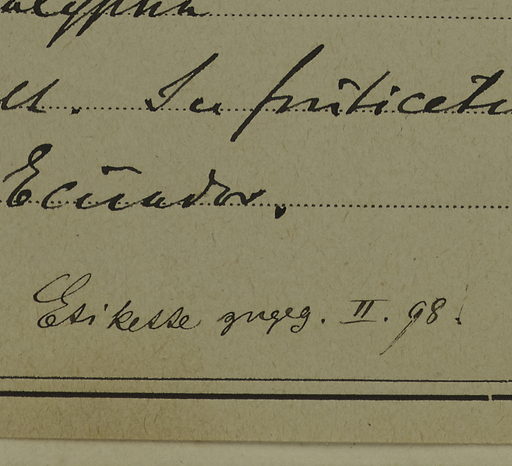 alypha
In fruticetu
Ecuador.
Etikette zugeg. II. 98.